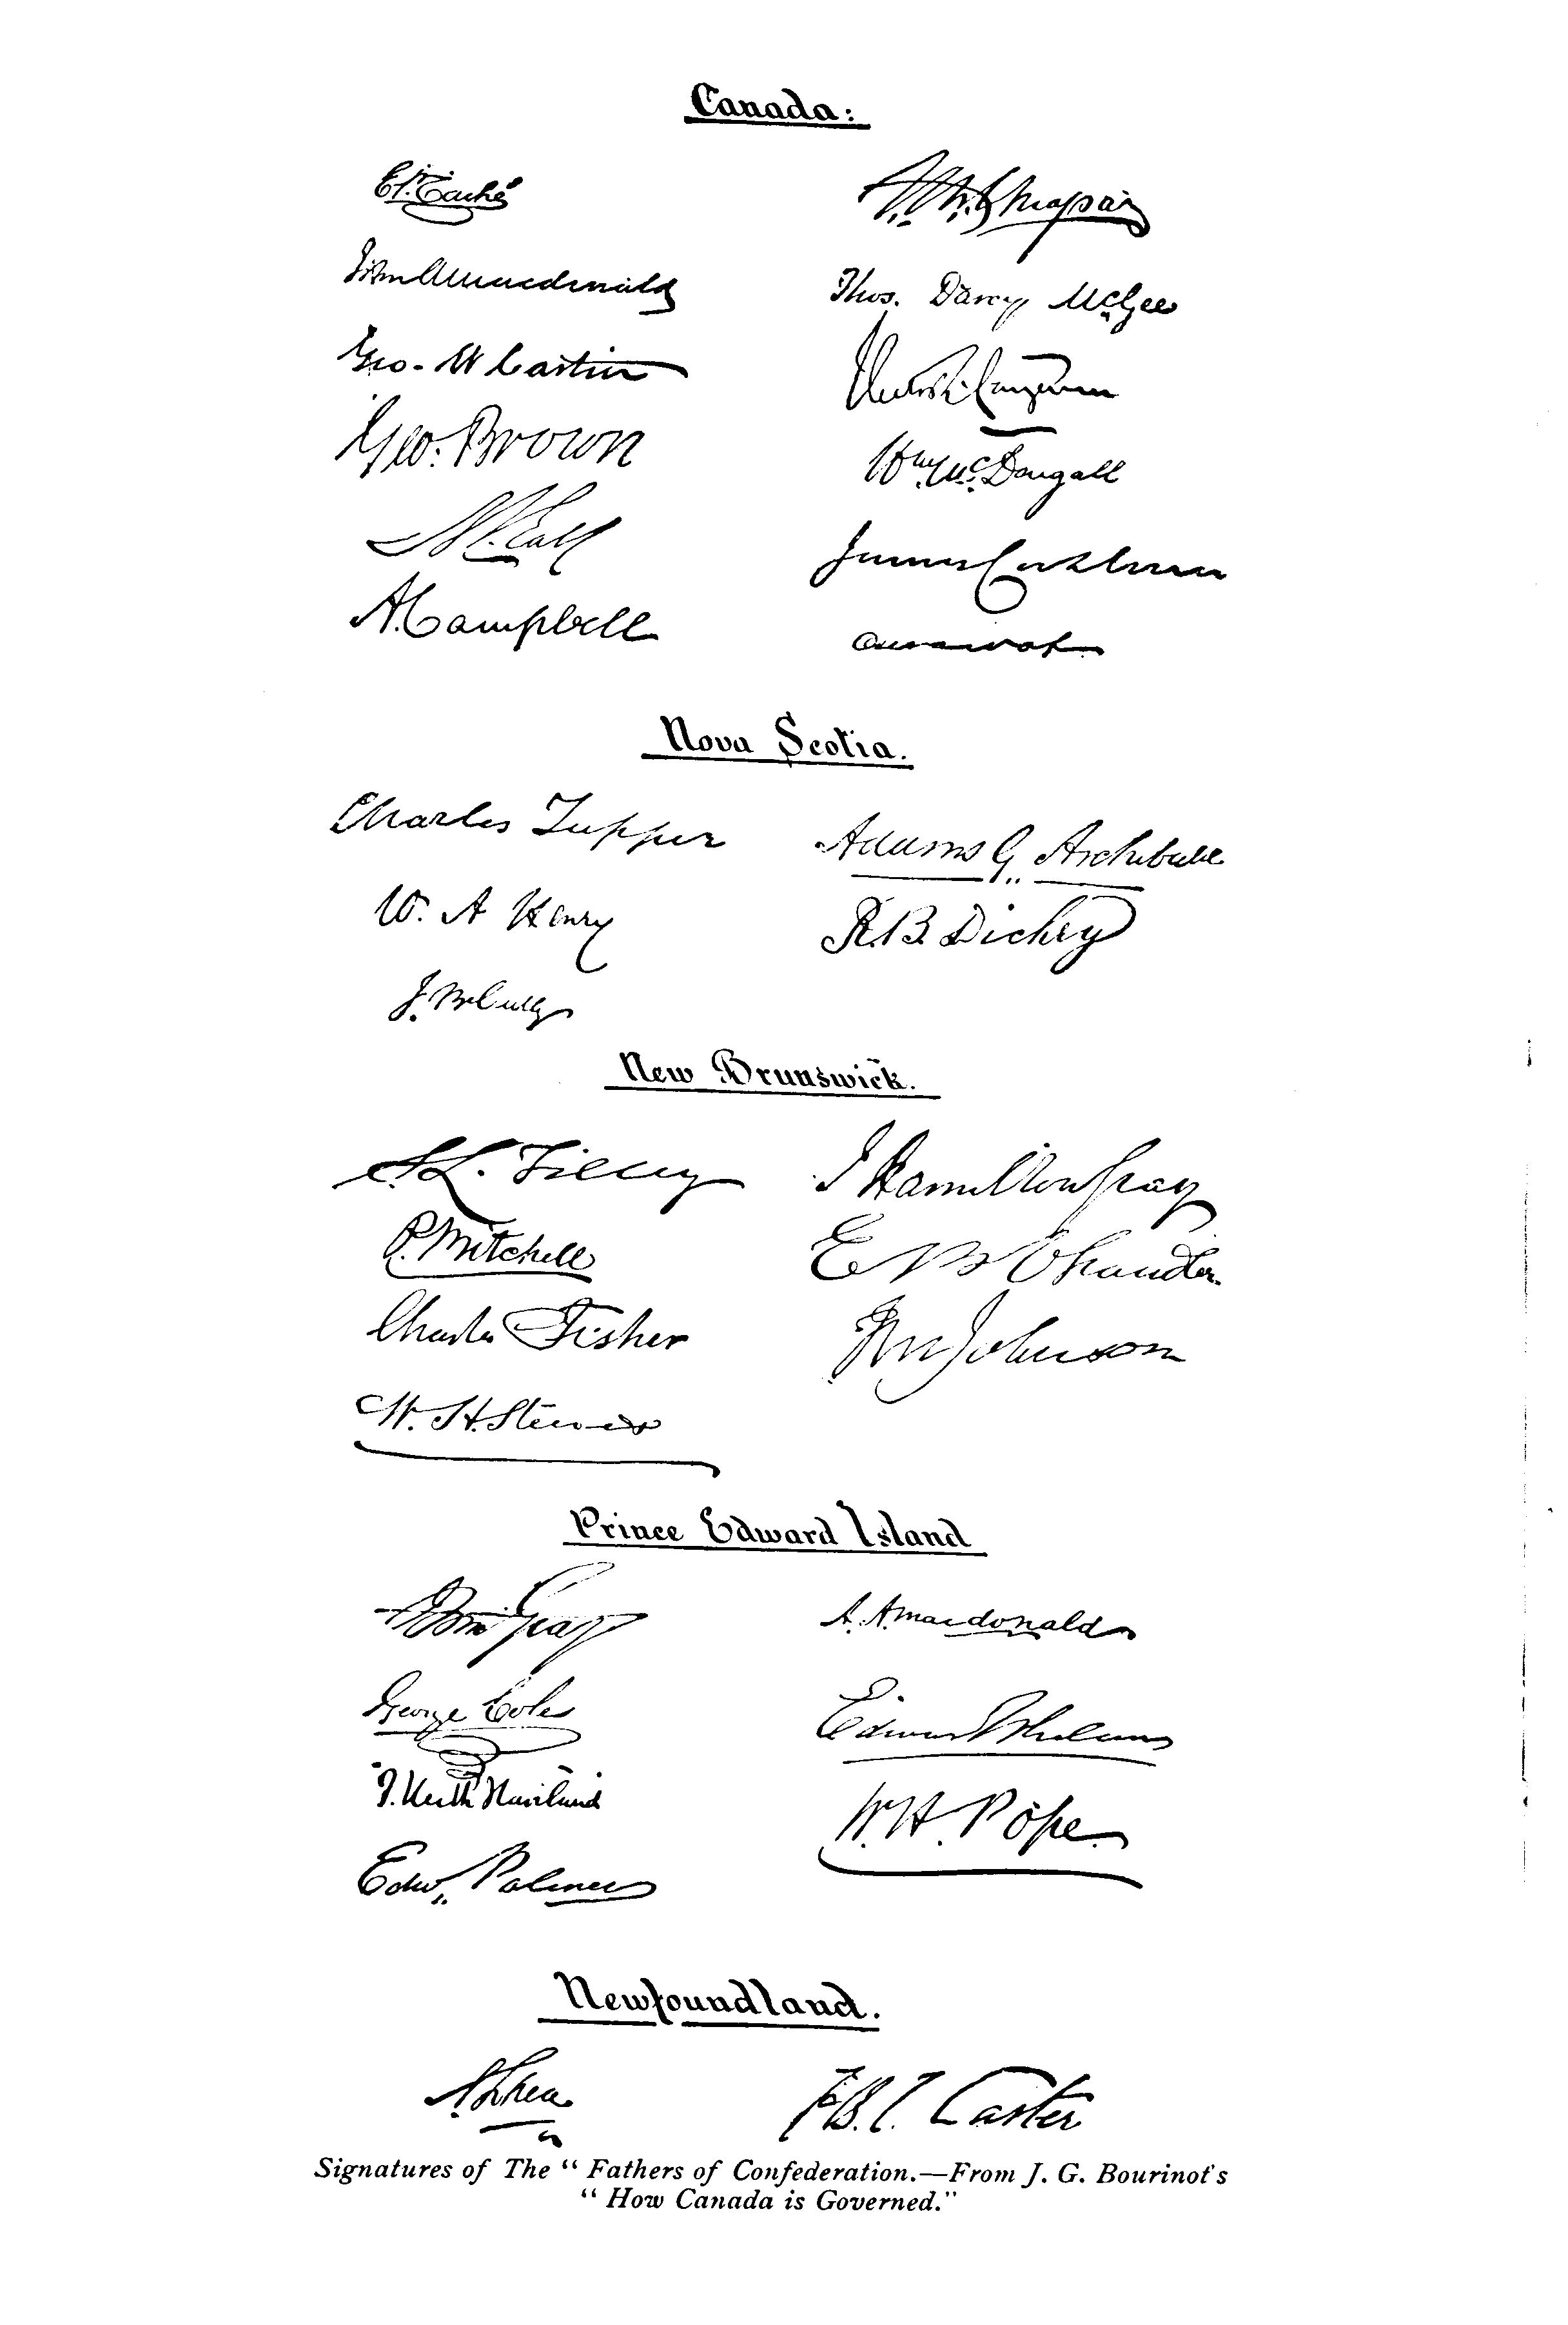 Canada:
E. P. Taché
John A Macdonald
Geo. E Cartier
Geo. Brown
A. T. Galt
A. Campbell
J. C. Chapais
Thos. Darcy McGee
Hector L. Langevin
Wm McDougall
James Cockburn
O Mowat
Nova Scotia.
Charles Tupper
W. A Henry
J. McCully
Adams G. Archibald
R. B. Dickey
New Brunswick.
S. L. Tilley
P. Mitchell
Charles Fisher
W. H. Steeves
J Hamilton Gray
E B Chandler
J M Johnson
Prince Edward Island
Gray
George Coles
T. Heath Haviland
Edw. Palmer
A. A. Macdonald
Edward Whelan
W. H. Pope
Newfoundland.
A. Shea
F. B. T. Carter
Signatures of The “ Fathers of Confederation.—From J. G. Bourinot's
“ How Canada is Governed."